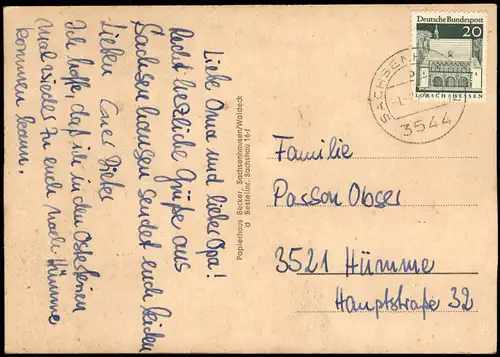 Liebe Oma und lieber Opa!
Recht herzliche Grüße aus
Sachsenhausen sendet euch beiden
Lieben Euer Dieter
Ich hoffe, daß ich in den Osterferien
mal wieder zu euch nach Hümme
kommen kann.
Papierhaus Becker, Sachsenhausen/Waldeck
Bestellnr. Sachshau 16-f
Deutsche Bundespost
20
LORSCH/HESSEN
3544
Familie
Passon Obser
3521 Hümme
Hauptstraße 32